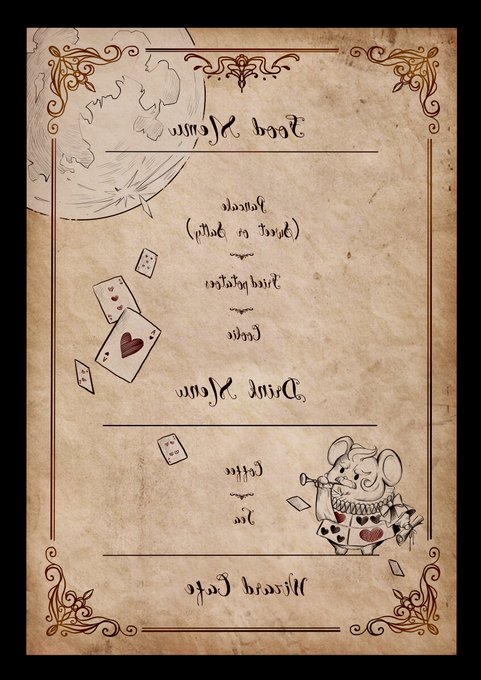 Food Menu
Pancake
(Sweet or Salty)
Fried potatoes
Cookie
Drink Menu
Coffee
Tea
Wizard Cafe